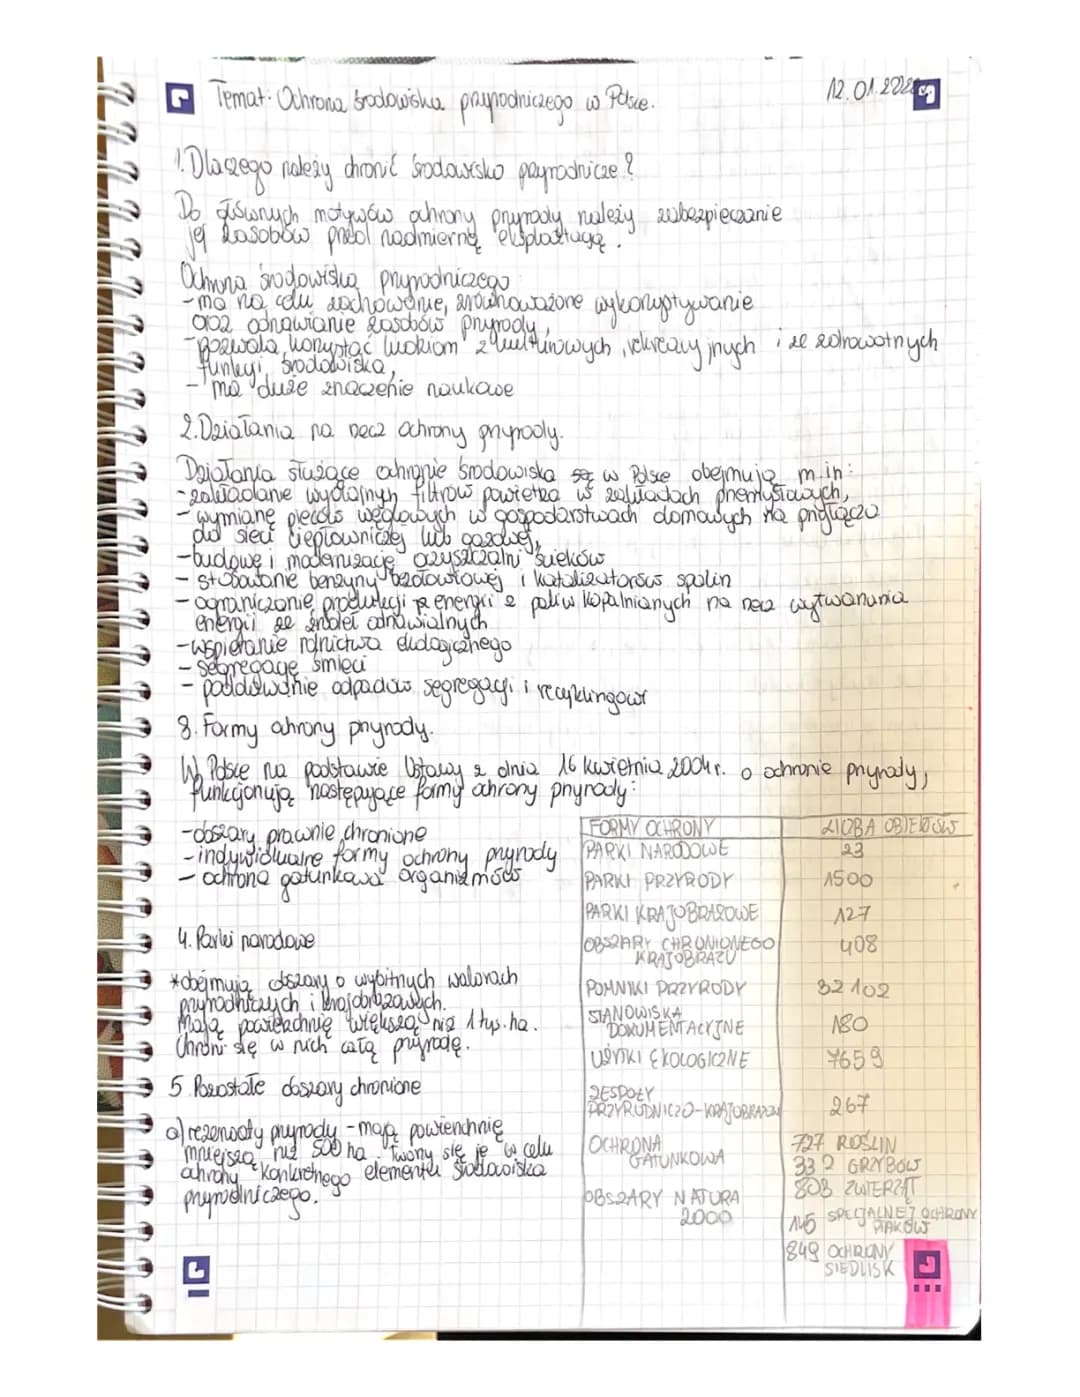 Temat: Ochrona środowiska przyrodniczego w Polsce.
12.01.202
1. Dlaczego należy chronić środowisko przyrodnicze?
Do głównych motywów ochrony przyrody należy zabezpieczanie
jej zasobów przed nadmierną eksploatacją.
Ochrona środowiska przyrodniczego:
- ma na celu zachowanie, zrównoważone wykorzystywanie
oraz odnawianie zasobów przyrody,
- pozwala korzystać ludziom z kulturowych, rekreacyjnych i ze zdrowotnych
funkcji środowiska,
- ma duże znaczenie naukowe
2. Działania na rzecz ochrony przyrody.
Działania służące ochronie środowiska są w Polsce obejmują m.in:
- zakładanie wydajnych filtrów powietrza w zakładach przemysłowych,
- wymianę pieców węglowych w gospodarstwach domowych na przyłącza
do sieci ciepłowniczej lub gazowej,
- budowę i modernizację oczyszczalni ścieków
- stosowanie benzyny bezołowiowej i katalizatorów spalin
- ograniczanie produkcji energii z paliw kopalnianych na rzecz wytwarzania
energii ze źródeł odnawialnych
- wspieranie rolnictwa ekologicznego
- segregację śmieci
- poddawanie odpadów segregacji i recyklingowi
3. Formy ochrony przyrody.
W Polsce na podstawie Ustawy z dnia 16 kwietnia 2004 r. o ochronie przyrody,
funkcjonują następujące formy ochrony przyrody:
- obszary prawnie chronione
- indywidualne formy ochrony przyrody
- ochrona gatunkowa organizmów
4. Parki narodowe
* obejmują obszary o wybitnych walorach
przyrodniczych i krajobrazowych.
Mają powierzchnię większą niż 1 tys. ha.
Chroni się w nich całą przyrodę.
5 Pozostałe obszary chronione
a) rezerwaty przyrody - mają powierzchnię
mniejszą niż 500 ha. Tworzy się je w celu
ochrony konkretnego elementu środowiska
przyrodniczego.
FORMY OCHRONY LICZBA OBIEKTÓW
PARKI NARODOWE 23
PARKI PRZYRODY 1500
PARKI KRAJOBRAZOWE 127
OBSZARY CHRONIONEGO 408
KRAJOBRAZU
POMNIKI PRZYRODY 32 102
STANOWISKA
DOKUMENTACYJNE 180
UŻYTKI EKOLOGICZNE 7659
ZESPOŁY
PRZYRODNICZO-KRAJOBRAZOW 267
OCHRONA 727 ROŚLIN
GATUNKOWA 332 GRZYBÓW
803 ZWIERZĄT
OBSZARY NATURA
2000 145 SPECJALNEJ OCHRONY
PTAKÓW
849 OCHRONY
SIEDLISK